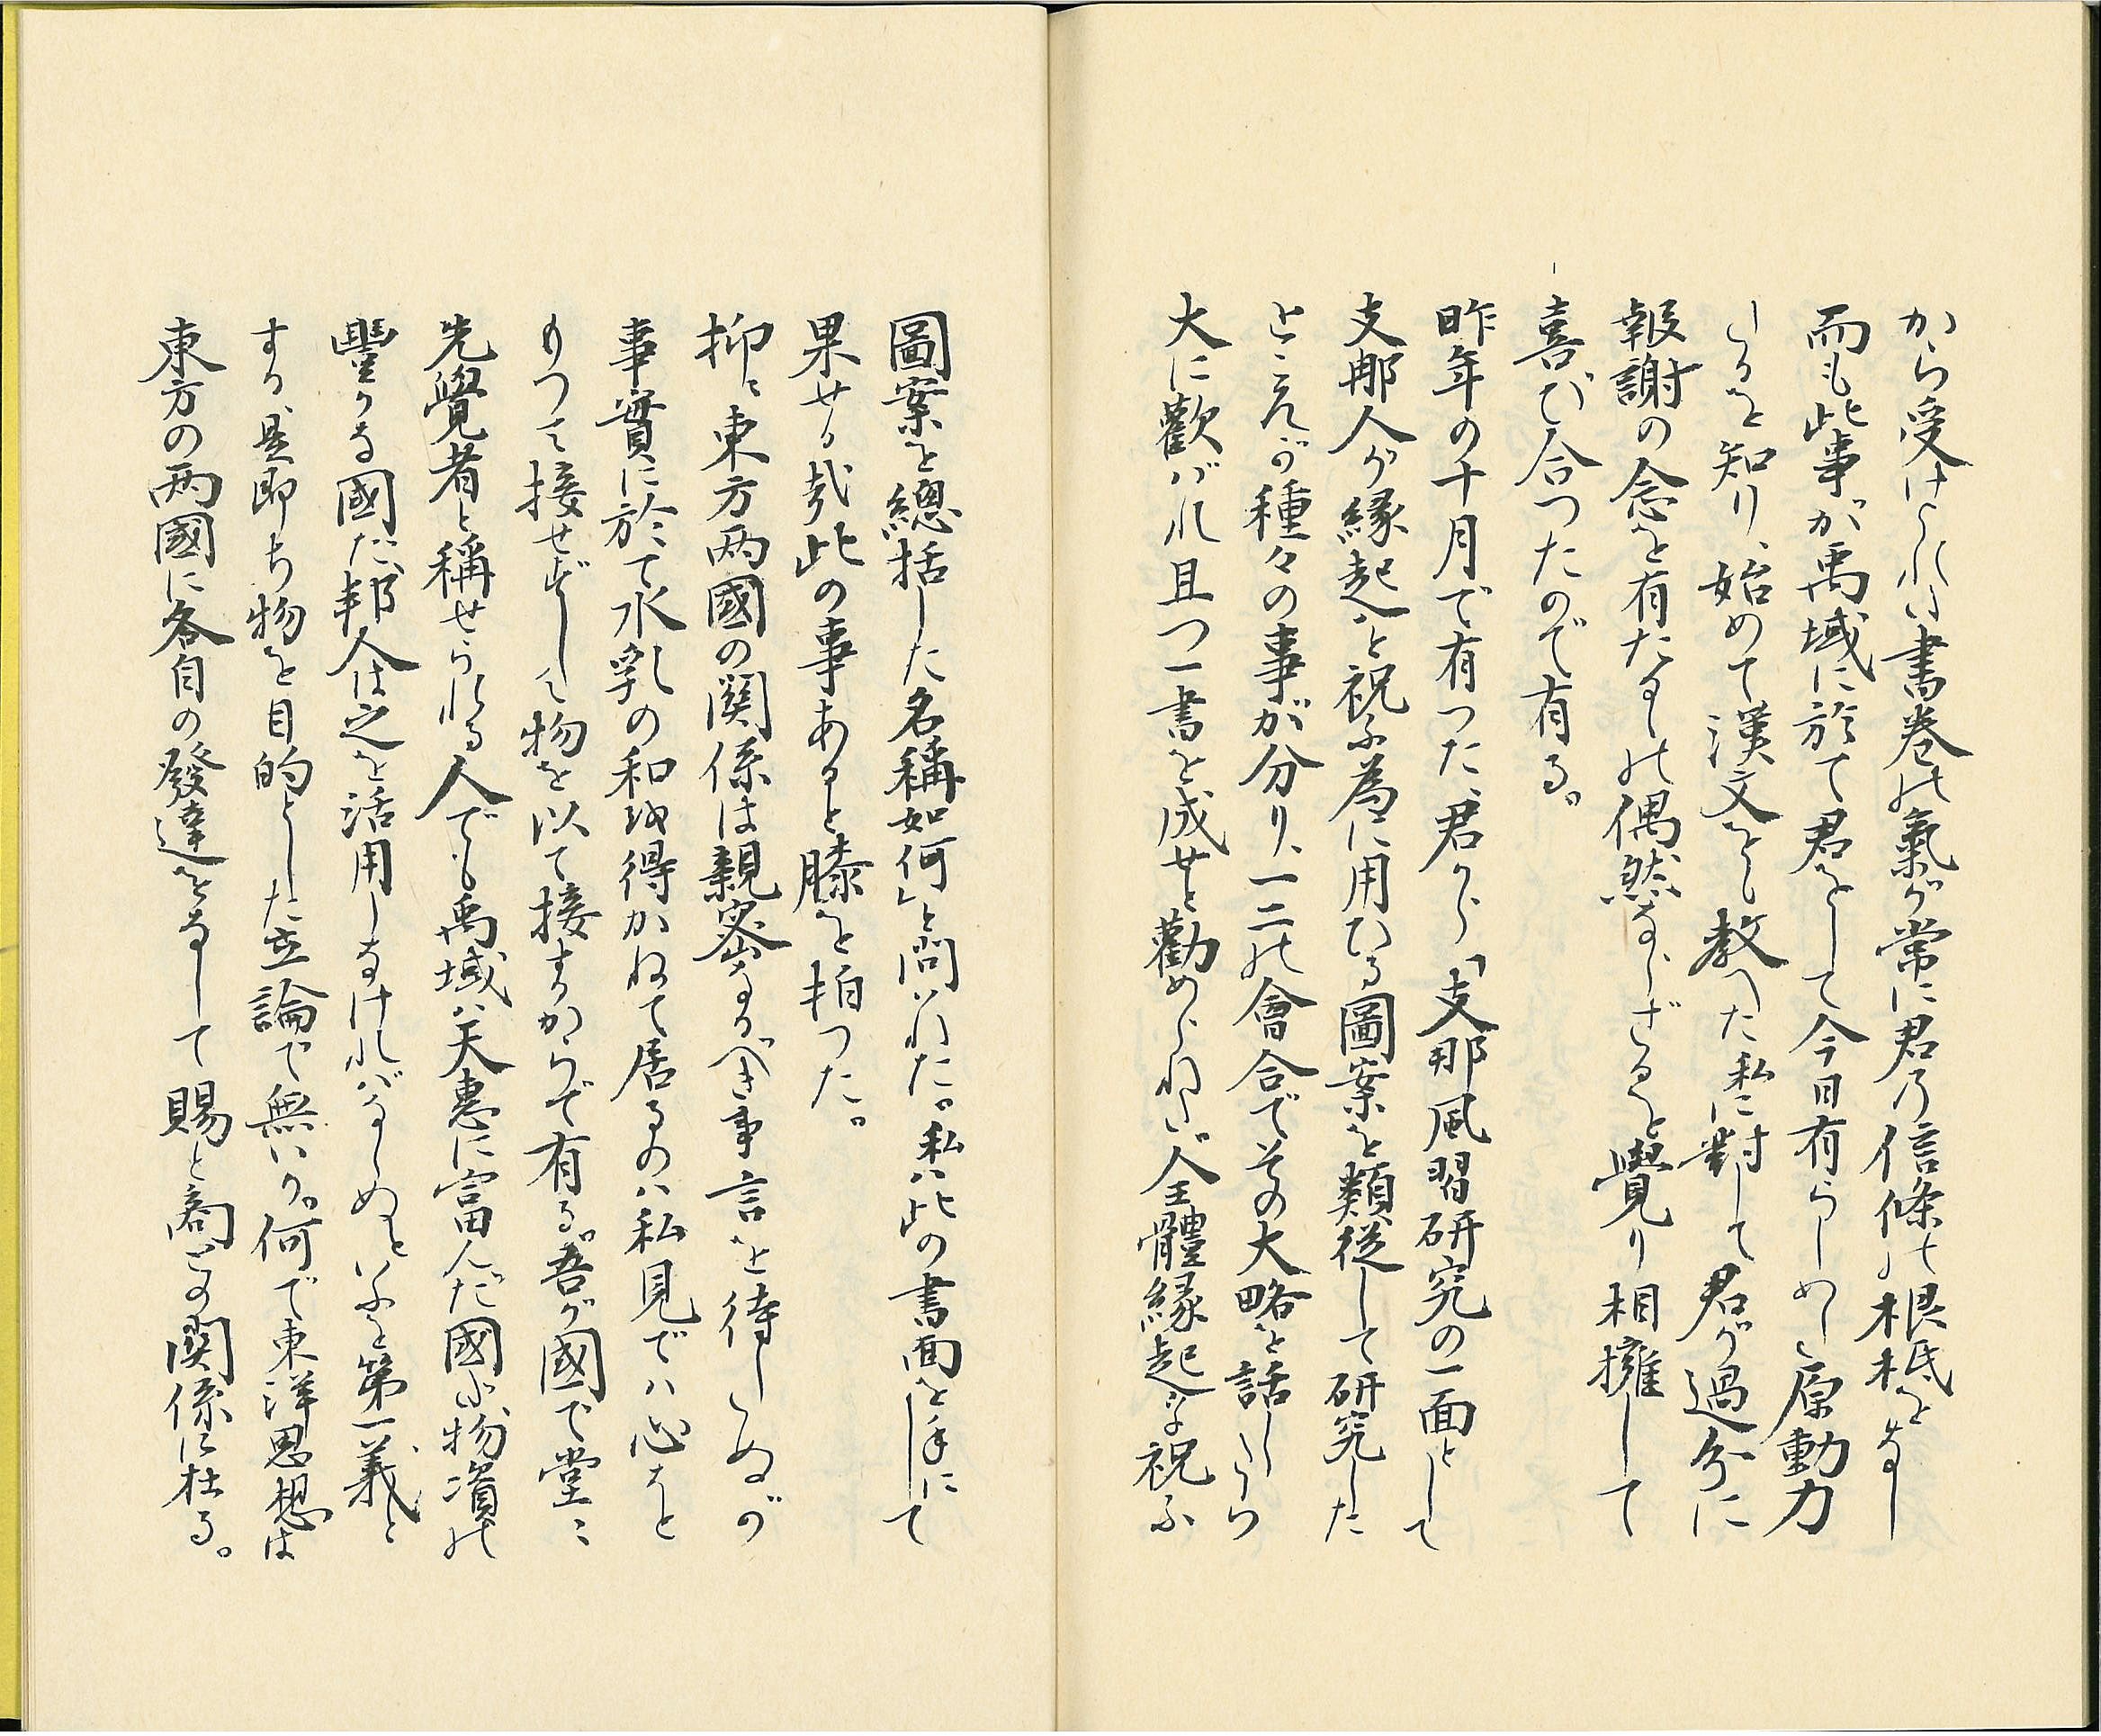 から受けられい書巻の氣が常に君の信條の根柢をなし
而も此事が禹域に於て君をして今日有らしめし原動力
たるを知り、始めて漢文をも教へた私に對して君が過分に
報謝の念を有たるゝの偶然ならざるを覺り相擁して
喜び合つたので有る。
昨年の十月で有つた、君から「支那風習研究の一面として
支那人が縁起を祝ふ為に用ひる圖案を類従して研究した
ところが種々の事が分り、一二の會合でその大略を話したら
大に歡ばれ且つ一書を成せと勸められたが全體縁起を祝ふ
圖案を總括した名稱如何」と問はれた。私は此の書面を手にして
果せる哉此の事あると膝を拍つた。
抑々東方两國の関係は親密なるべき事言を待たぬが
事實に於て水乳の和を得かねて居るのは私見では心を
もつて接せずして物を以て接するからで有る。吾が國で堂々
先覺者と稱せられる人でも禹域は天惠に富んだ國だ物資の
豐かな國だ、邦人は之を活用しなければならぬといふを第一義と
する、是即ち物を目的とした立論で無いか。何で東洋思想は
東方の两國に各自の發達をなして賜と商との関係に在る。